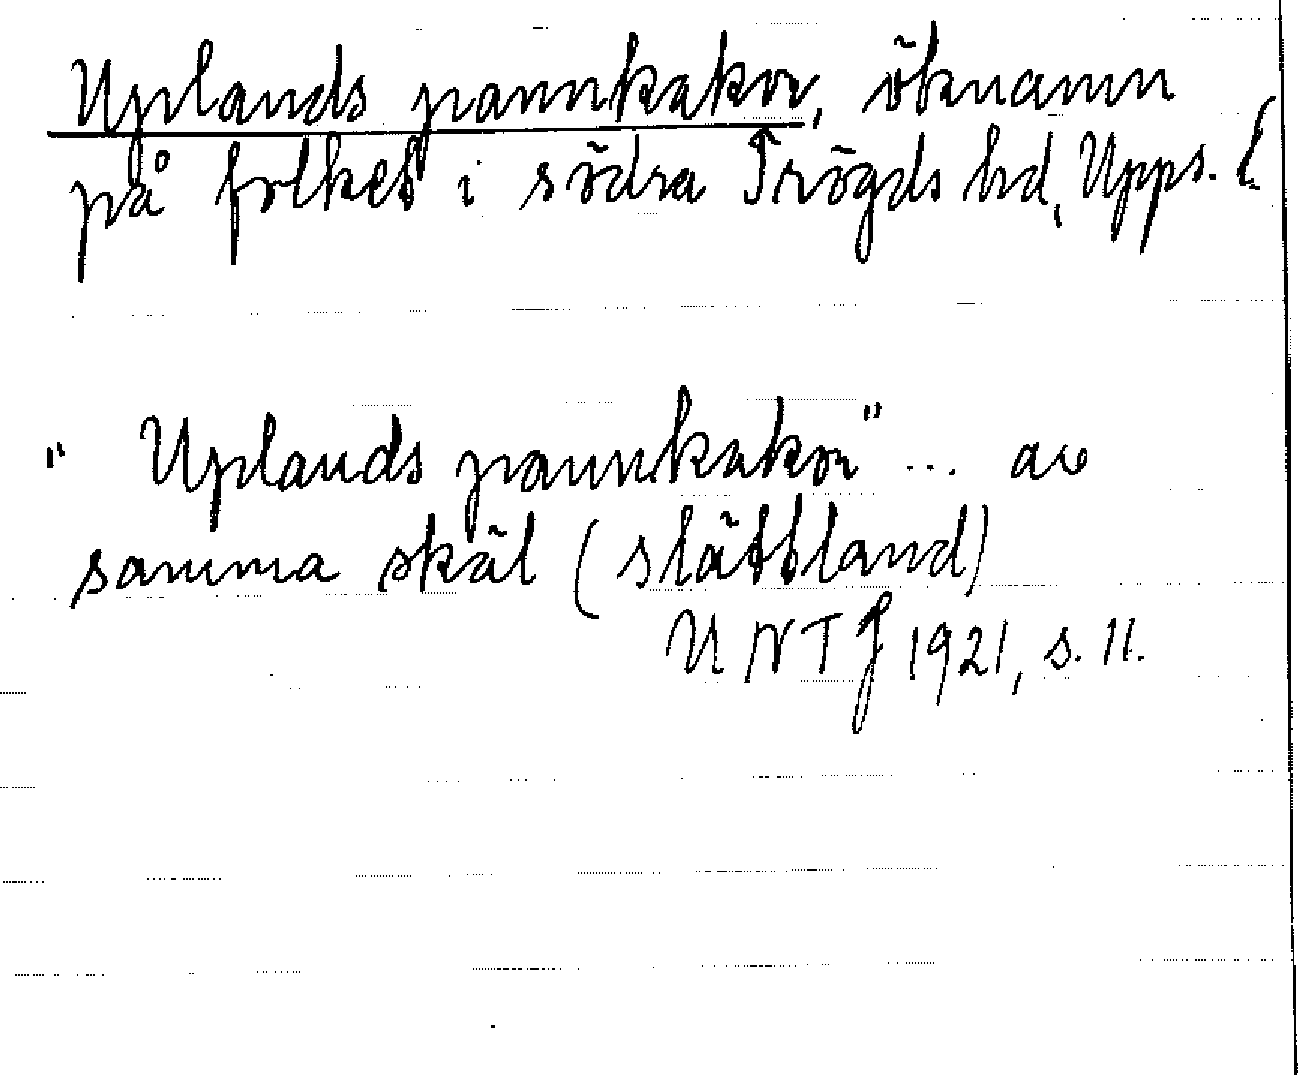 Uplands pannkakor, öknamn
på folket i södra Trögds hd, Upps. l
" Uplands pannkakor" ... av
samma skäl (slättland)
UNTJ 1921, s. 11.